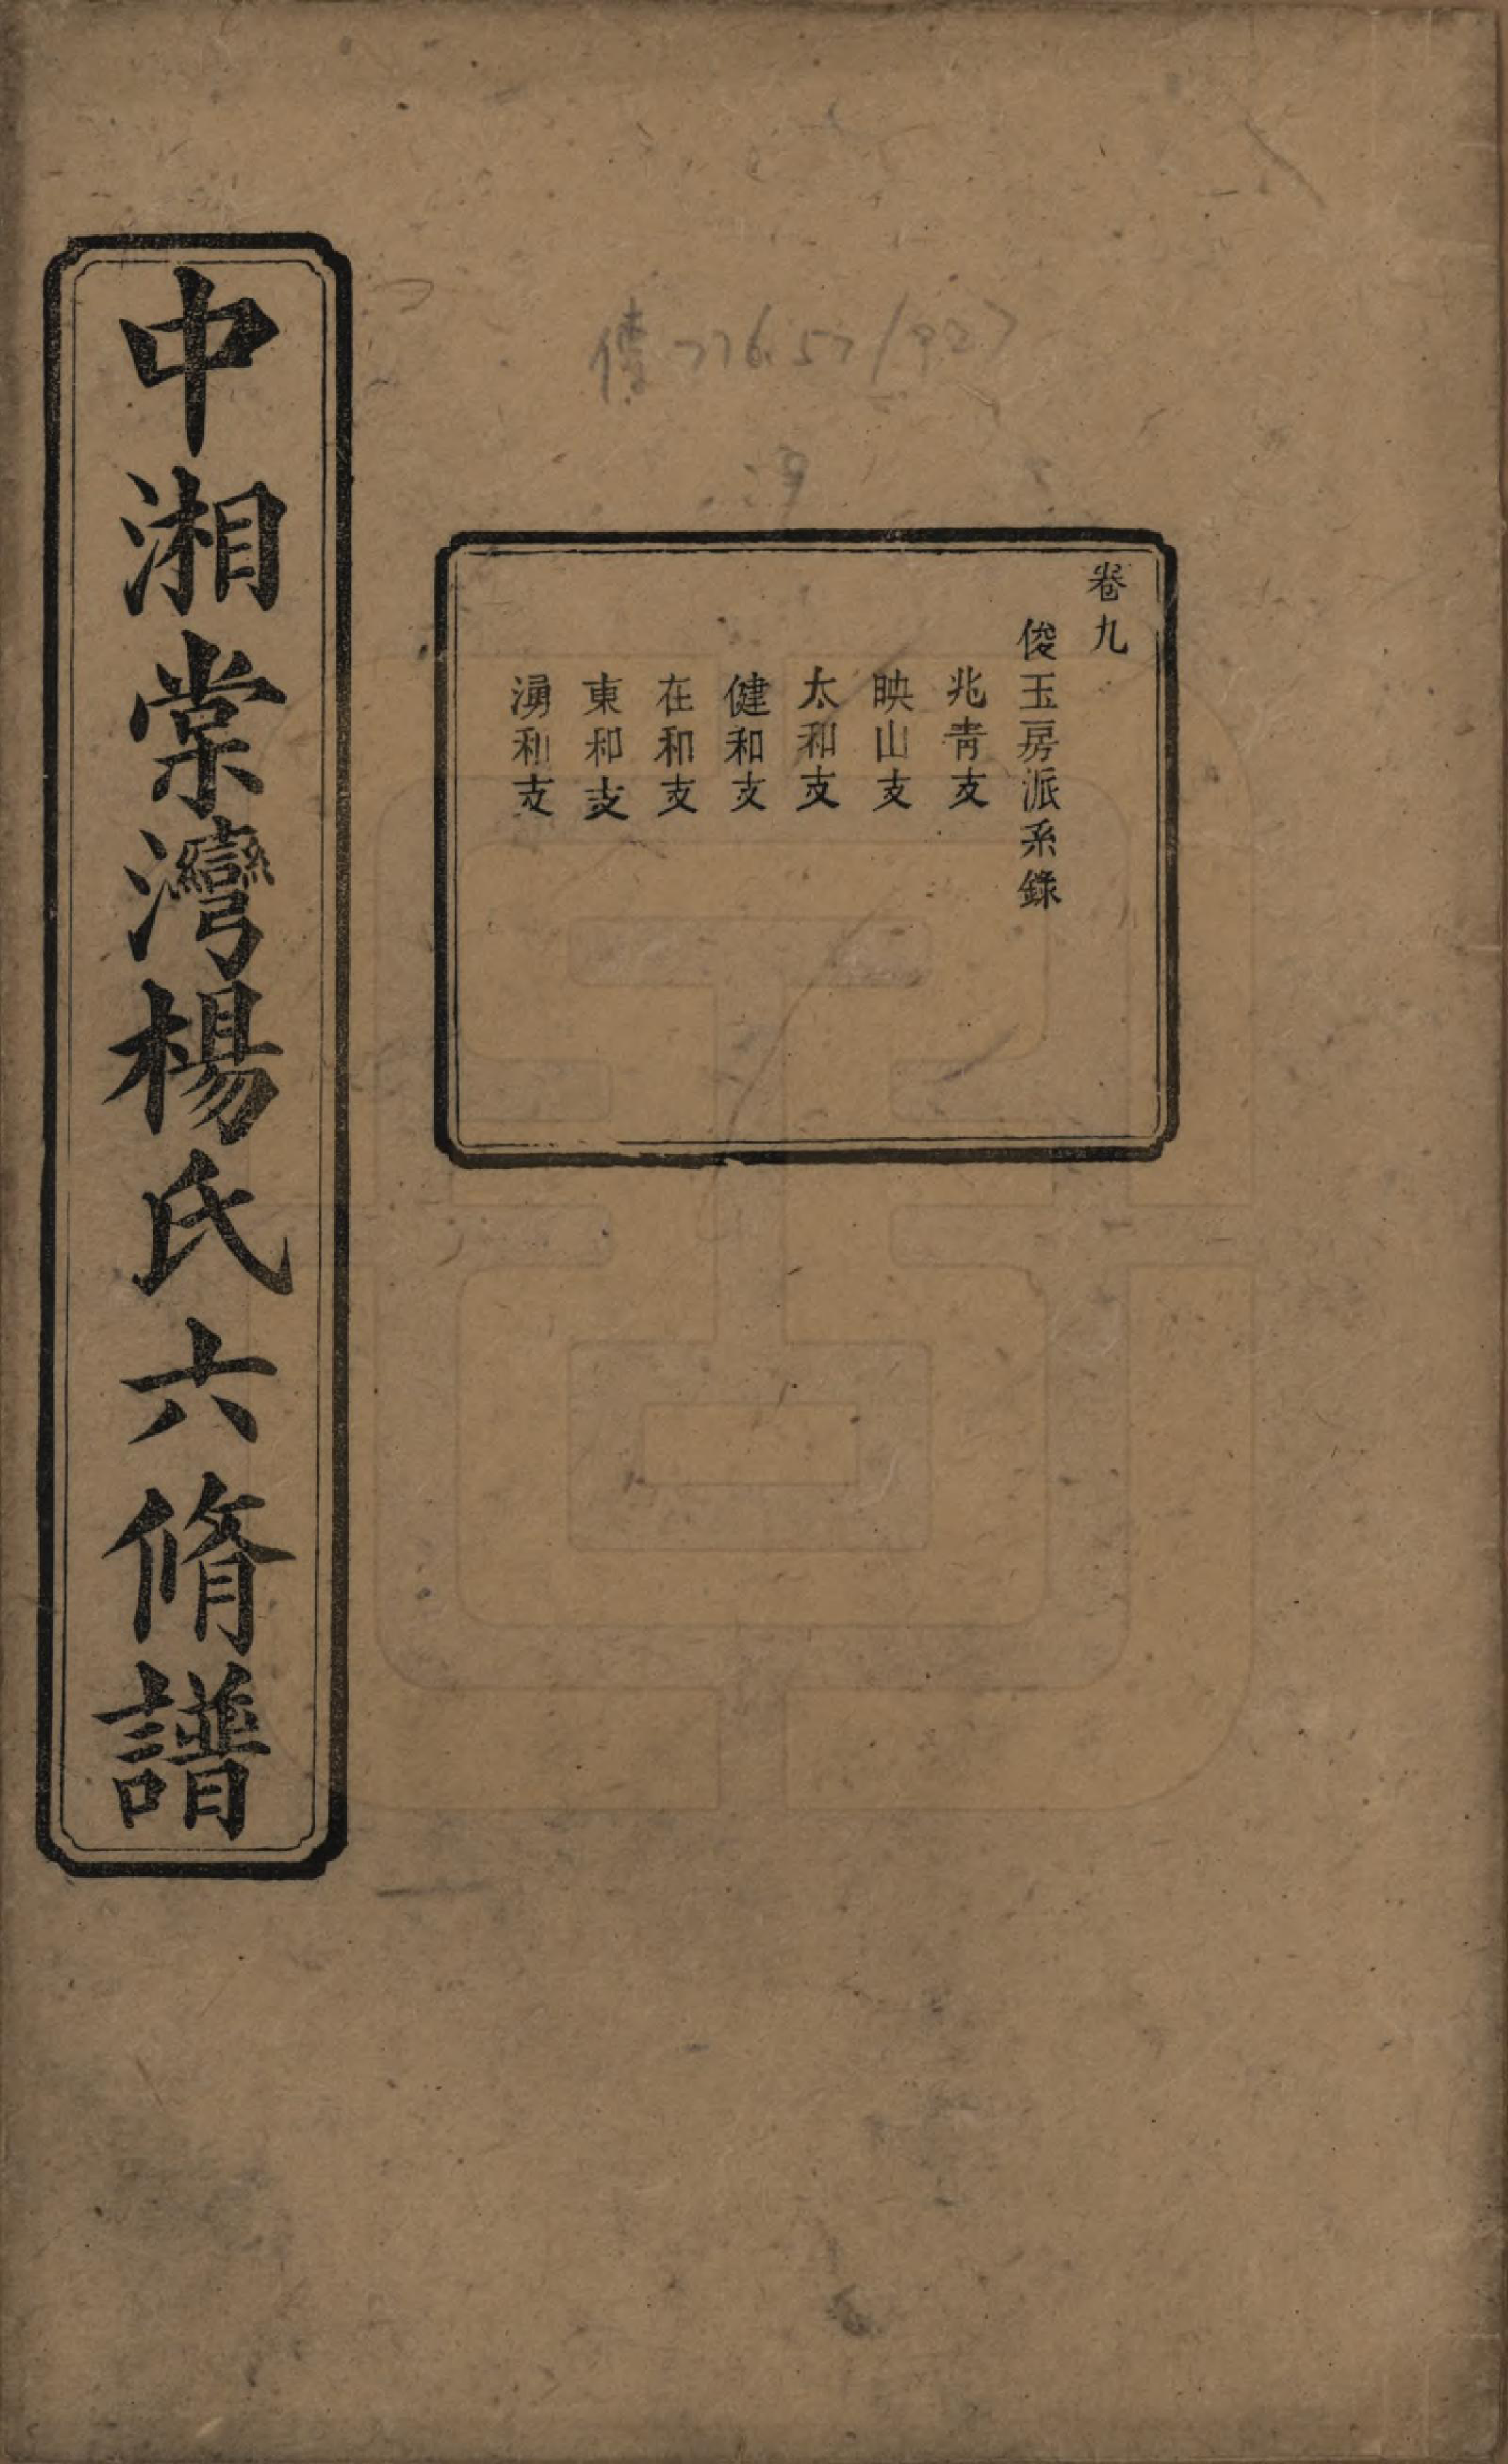 傳776.57/927
卷九
俊玉房派系錄
兆靑支
映山支
太和支
健和支
在和支
東和支
湧和支
中湘棠灣楊氏六脩譜